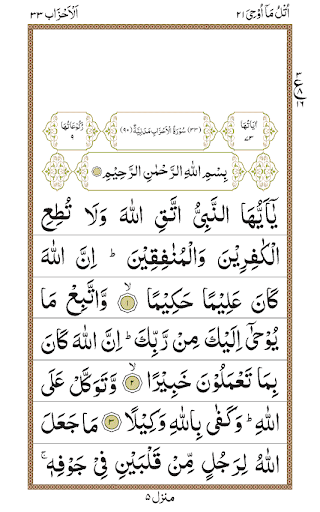 اُتْلُ مَاۤ اُوْحِیَ ۲۱
اَلْاَحْزَاب ۳۳
ع
۸
۱۶
اٰیَاتُهَا ۷۳
(۳۳) سُوْرَةُ الْاَحْزَابِ مَدَنِیَّةٌ (۹۰)
رُكُوْعَاتُهَا ۹
بِسْمِ اللّٰهِ الرَّحْمٰنِ الرَّحِیْمِ
یٰۤاَیُّهَا النَّبِیُّ اتَّقِ اللّٰهَ وَلَا تُطِعِ
الْكٰفِرِیْنَ وَالْمُنٰفِقِیْنَ ؕ اِنَّ اللّٰهَ
كَانَ عَلِیْمًا حَكِیْمًا ۙ﴿۱﴾ وَّاتَّبِعْ مَا
یُوْحٰۤی اِلَیْكَ مِنْ رَّبِّكَ ؕ اِنَّ اللّٰهَ كَانَ
بِمَا تَعْمَلُوْنَ خَبِیْرًا ۙ﴿۲﴾ وَّتَوَكَّلْ عَلَی
اللّٰهِ ؕ وَكَفٰی بِاللّٰهِ وَكِیْلًا ﴿۳﴾ مَا جَعَلَ
اللّٰهُ لِرَجُلٍ مِّنْ قَلْبَیْنِ فِیْ جَوْفِهٖ ۚ
منزل ۵